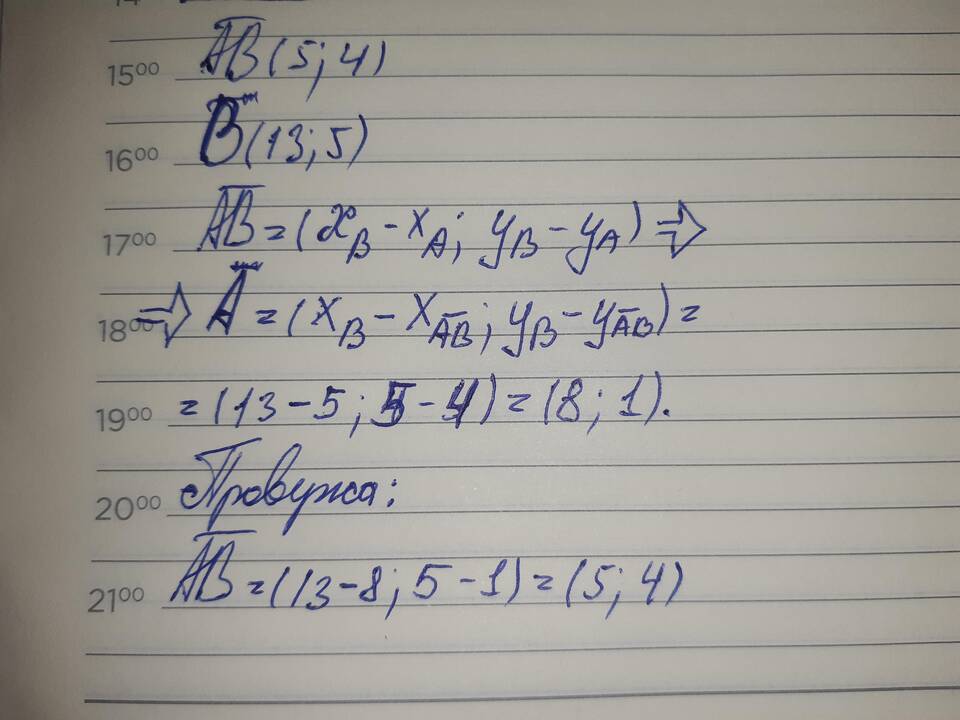 15⁰⁰ A̅B̅(5; 4)
16⁰⁰ B(13; 5)
17⁰⁰ A̅B̅ = (x_B − x_A; y_B − y_A) ⇒
18⁰⁰ ⇒ A = (x_B − x_A̅B̅; y_B − y_A̅B̅) =
19⁰⁰ = (13 − 5; 5 − 4) = (8; 1).
20⁰⁰ Проверка:
21⁰⁰ A̅B̅ = (13 − 8; 5 − 1) = (5; 4)